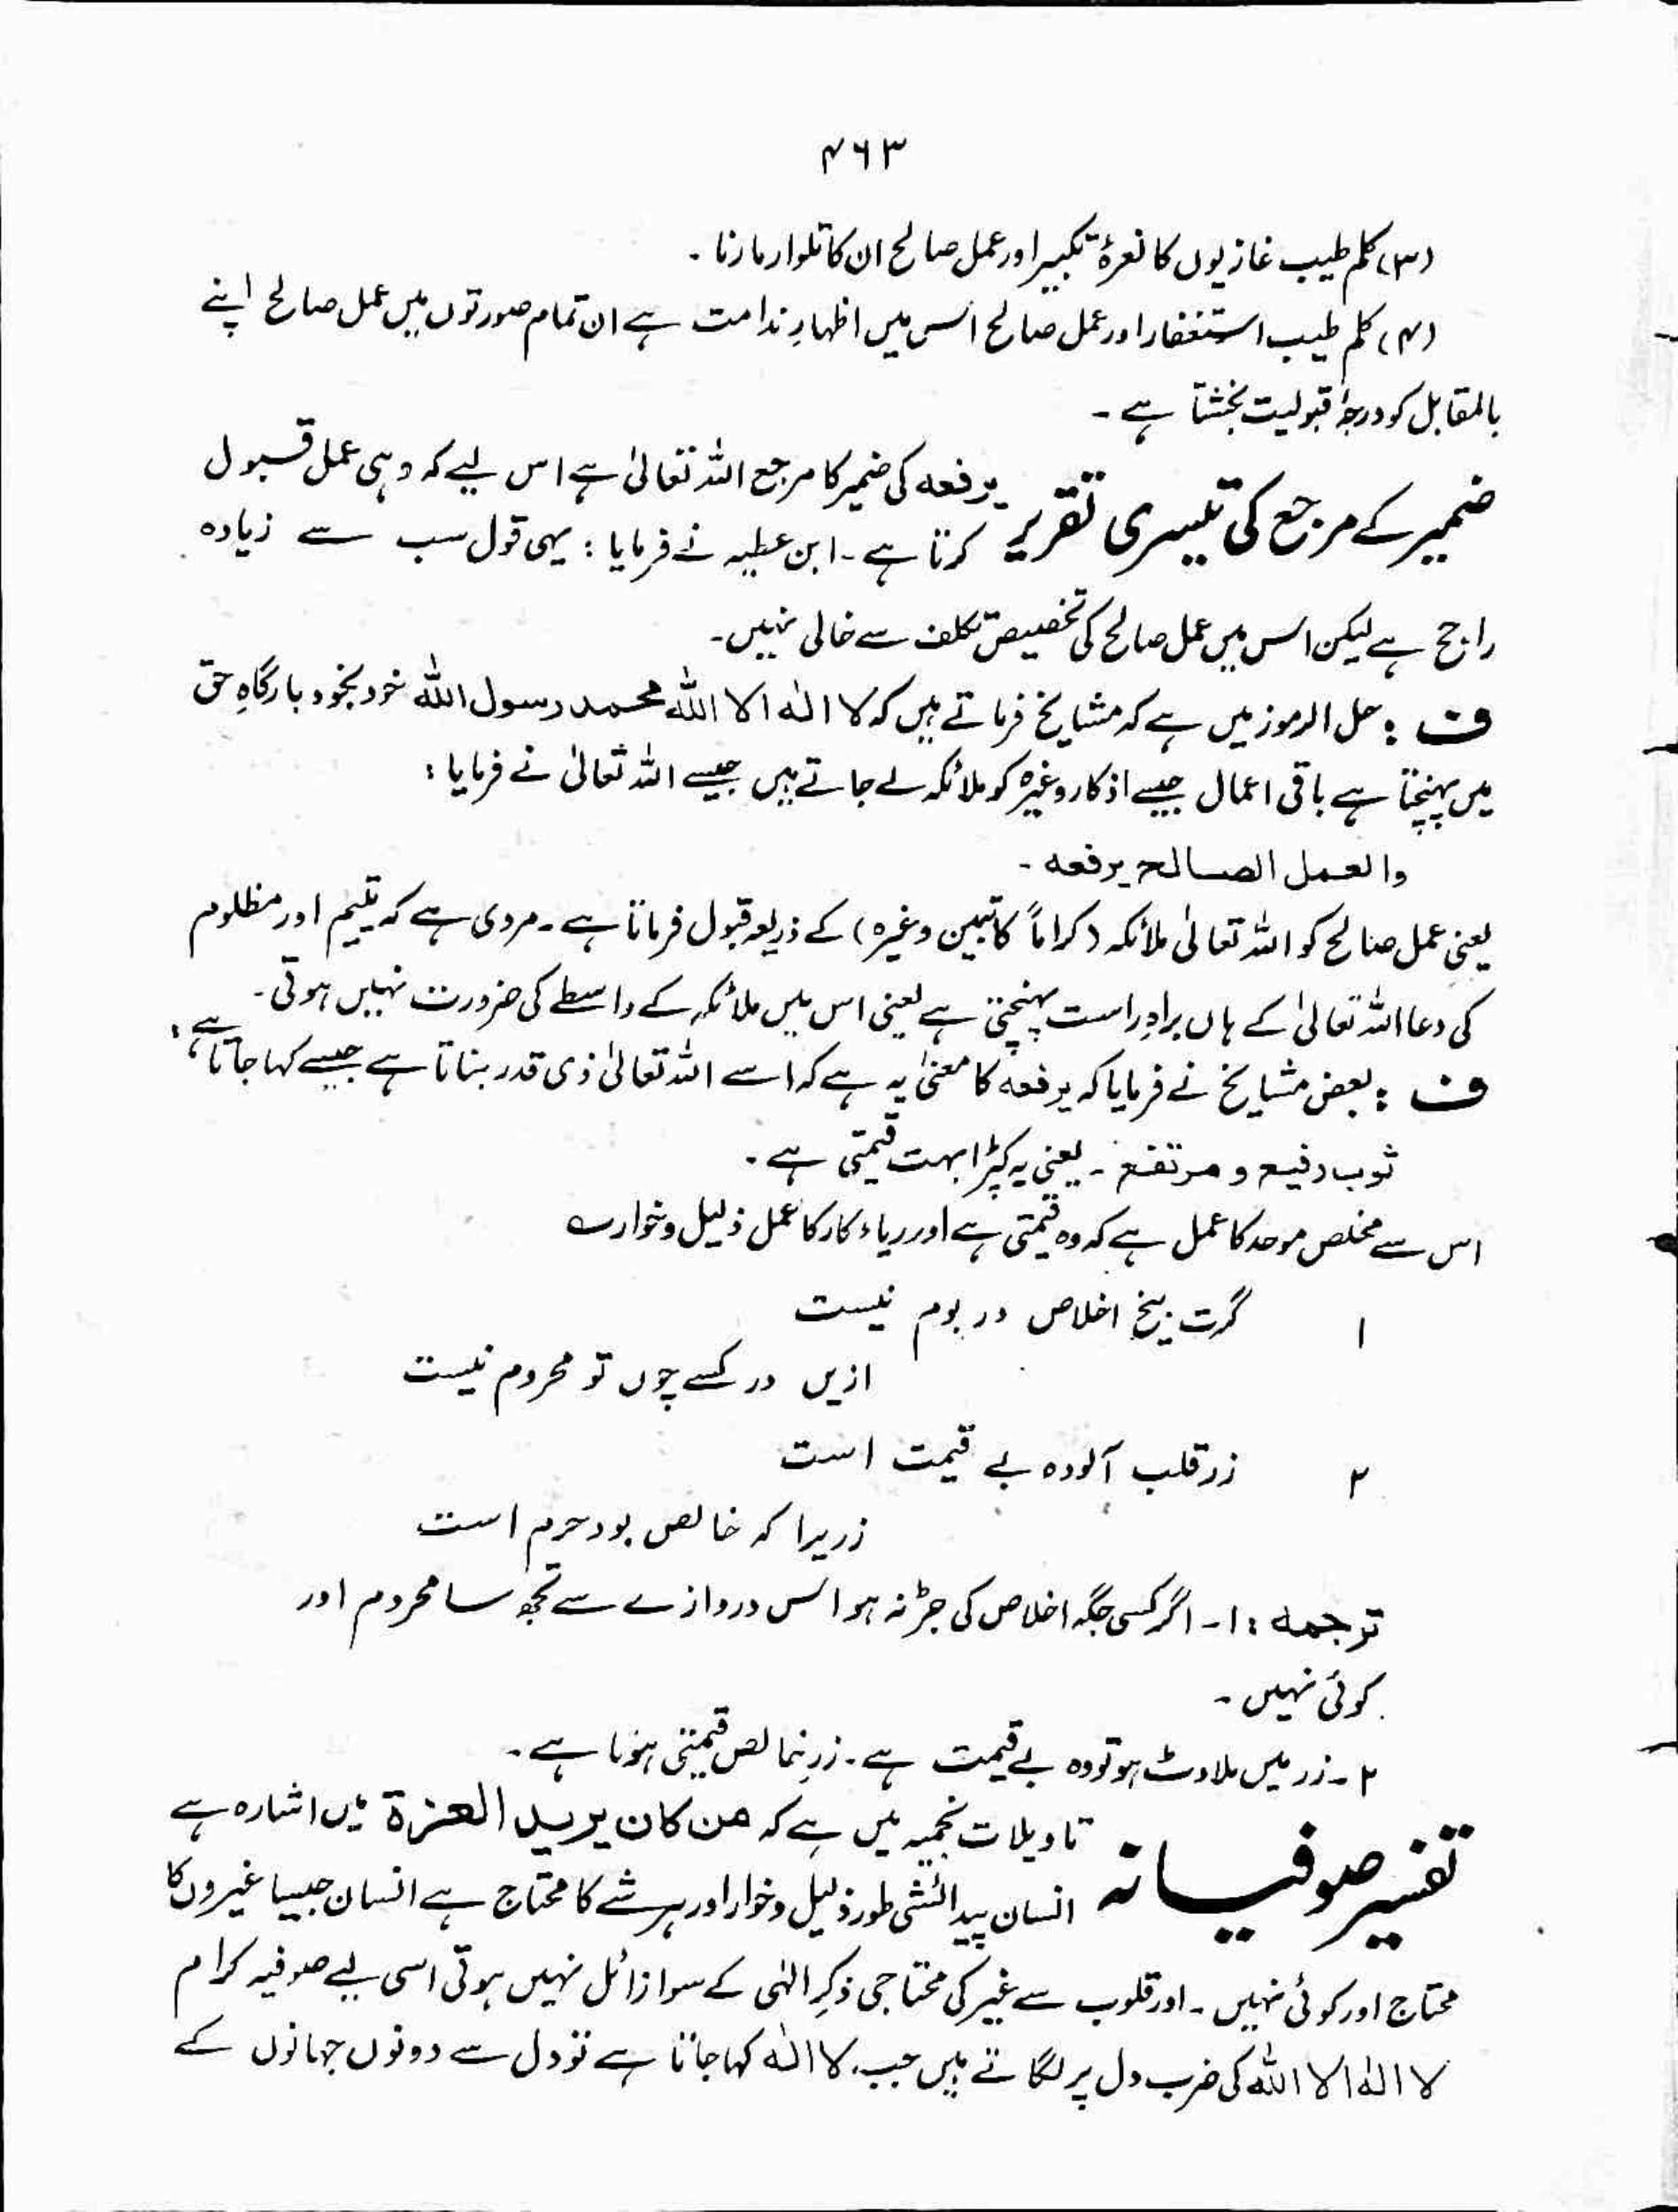 ۴۶۳
(۳) کلم طیب غازیوں کا نعرۂ تکبیر اور عمل صالح ان کا تلوار مارنا۔
(۴) کلم طیب استغفار اور عمل صالح اس میں اظہارِ ندامت ہے ان تمام صورتوں میں عمل صالح اپنے
بالمقابل کو درجۂ قبولیت بخشتا ہے۔
ضمیر کے مرجع کی تیسری تقریر یرفعه کی ضمیر کا مرجع اللہ تعالیٰ ہے اس لیے کہ وہی عمل قبول
کرتا ہے۔ ابن عطیہ نے فرمایا : یہی قول سب سے زیادہ
راجح ہے لیکن اس میں عمل صالح کی تخصیص تکلف سے خالی نہیں۔
ف : حل الرموز میں ہے کہ مشایخ فرماتے ہیں کہ لا الٰہ الا اللہ محمد رسول اللہ خود بخود بارگاہِ حق
میں پہنچتا ہے باقی اعمال جیسے اذکار وغیرہ کو ملائکہ لے جاتے ہیں جیسے اللہ تعالیٰ نے فرمایا :
والعمل الصالح یرفعه۔
یعنی عمل صالح کو اللہ تعالیٰ ملائکہ (کراماً کاتبین وغیرہ) کے ذریعہ قبول فرماتا ہے۔ مروی ہے کہ یتیم اور مظلوم
کی دعا اللہ تعالیٰ کے ہاں براہِ راست پہنچتی ہے یعنی اس میں ملائکہ کے واسطے کی ضرورت نہیں ہوتی۔
ف : بعض مشایخ نے فرمایا کہ یرفعه کا معنیٰ یہ ہے کہ اسے اللہ تعالیٰ ذی قدر بناتا ہے جیسے کہا جاتا ہے :
ثوب رفیع و مرتفع۔ یعنی یہ کپڑا بہت قیمتی ہے۔
اس سے مخلص موحد کا عمل ہے کہ وہ قیمتی ہے اور ریاء کار کا عمل ذلیل و خوار ؎
۱ گرت بیخ اخلاص در بوم نیست
ازیں در کسے چوں تو محروم نیست
۲ زر قلب آلودہ بے قیمت است
زریرا کہ خالص بود حرم است
ترجمہ : ۱۔ اگر کسی جگہ اخلاص کی جڑ نہ ہو اس دروازے سے تجھ سا محروم اور
کوئی نہیں۔
۲۔ زر میں ملاوٹ ہو تو وہ بے قیمت ہے۔ زرِ خالص قیمتی ہوتا ہے۔
تفسیر صوفیانہ تاویلات نجمیہ میں ہے کہ من کان یرید العزة میں اشارہ ہے
انسان پیدائشی طور ذلیل و خوار اور ہر شے کا محتاج ہے انسان جیسا غیروں کا
محتاج اور کوئی نہیں۔ اور قلوب سے غیر کی محتاجی ذکرِ الٰہی کے سوا زائل نہیں ہوتی اسی لیے صوفیہ کرام
لا الٰہ الا اللہ کی ضرب دل پر لگاتے ہیں جب لا الٰہ کہا جاتا ہے تو دل سے دونوں جہانوں کے